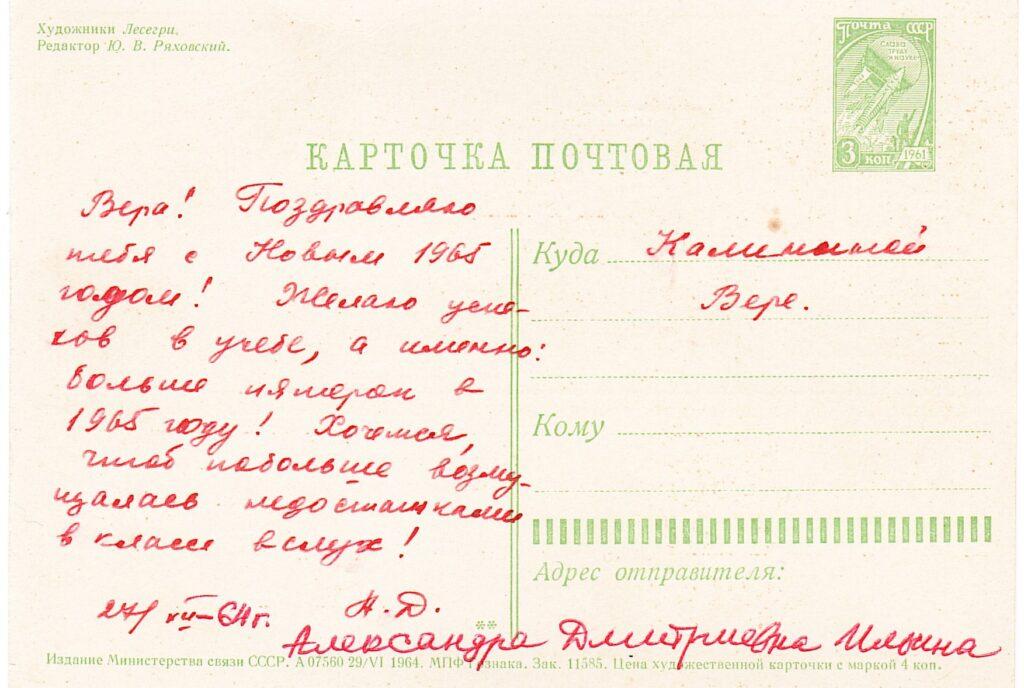 Художники Лесегри.
Редактор Ю. В. Ряховский.
Почта СССР
СЛАВА
ТРУДУ
И НАУКЕ
3 коп 1961
КАРТОЧКА ПОЧТОВАЯ
Вера! Поздравляю
тебя с Новым 1965
годом! Желаю успе-
хов в учебе, а именно:
больше пятерок в
1965 году! Хочется,
чтоб побольше возму-
щалась недостатками
в классе вслух!
27/XII-64г. А.Д.
Александра Дмитриевна Ильина
Куда Калининой
Вере.
Кому
Адрес отправителя:
**
Издание Министерства связи СССР. А 07560 29/VI 1964. МПФ Гознака. Зак. 11585. Цена художественной карточки с маркой 4 коп.